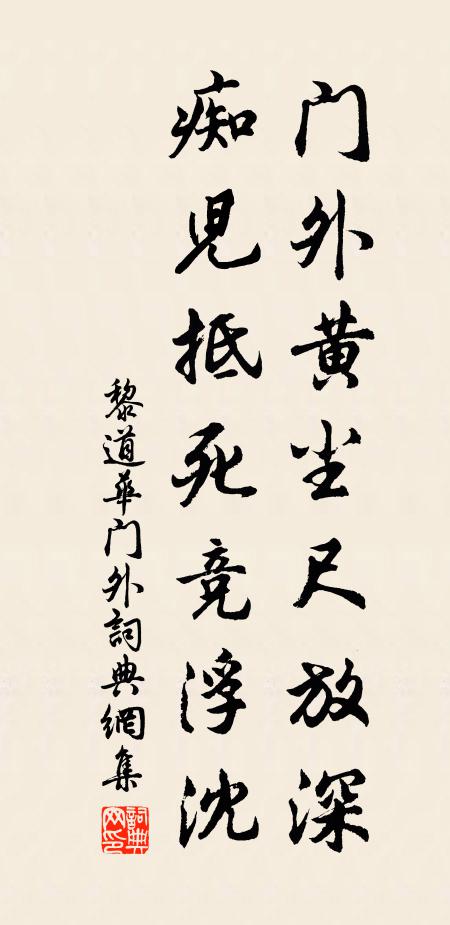 门外黄尘尺放深
痴児抵死竞浮沈
黎道华门外詞典網集
詞典网印